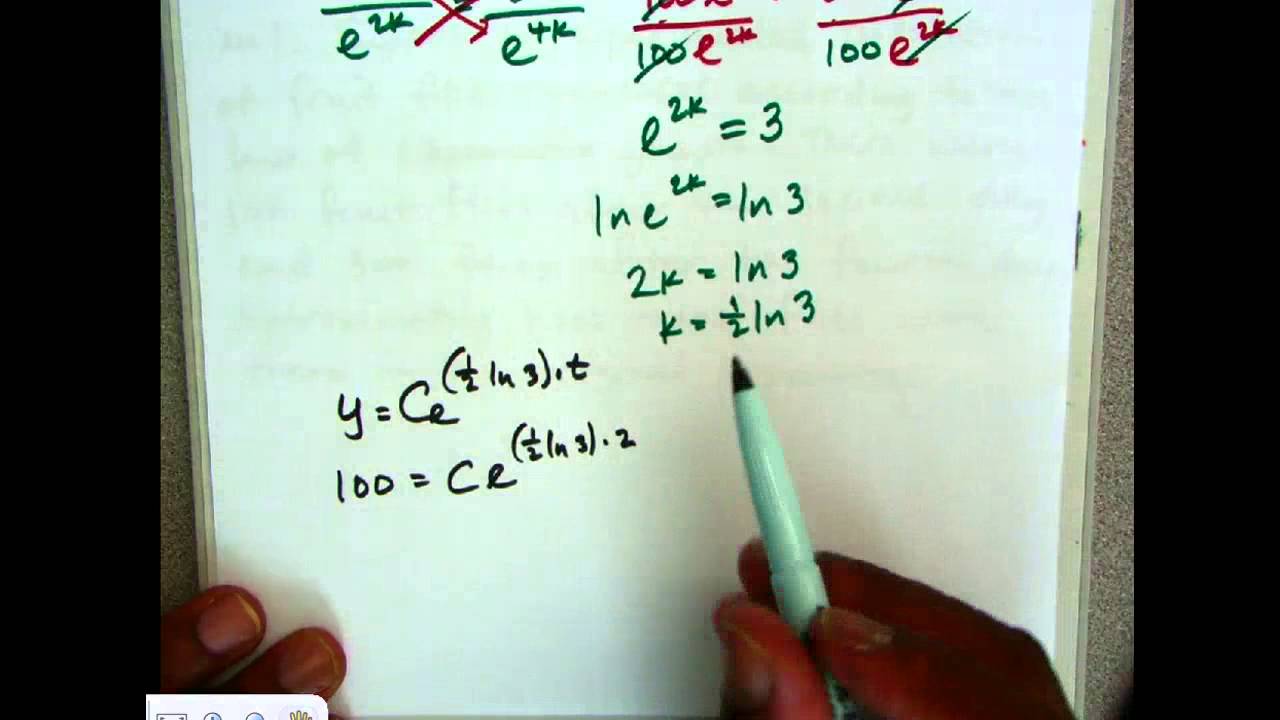 e^{2k} = e^{4k} 100e^{2k} 100e^{2k}
e^{2k} = 3
ln e^{2k} = ln 3
2k = ln 3
k = 1/2 ln 3
y = Ce^{(1/2 ln 3)·t}
100 = Ce^{(1/2 ln 3)·2}